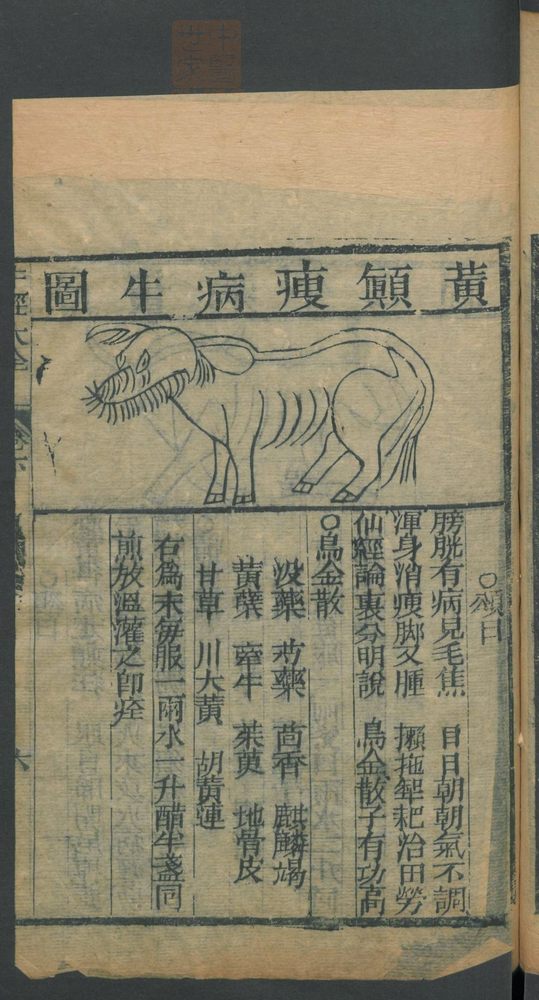 黃顙瘦病牛圖
○頌曰
膀胱有病見毛焦　日日朝朝氣不調
渾身消瘦脚又腫　攋拖犂耙治田勞
仙經論裏分明說　烏金散子有功高
○烏金散
沒藥　芍藥　茴香　麒麟竭
黃蘗　牽牛　茱萸　地骨皮
甘草　川大黃　胡黃連
右爲末每服一兩水一升醋半盞同
煎放溫灌之卽痊
牛經大全
卷下
六